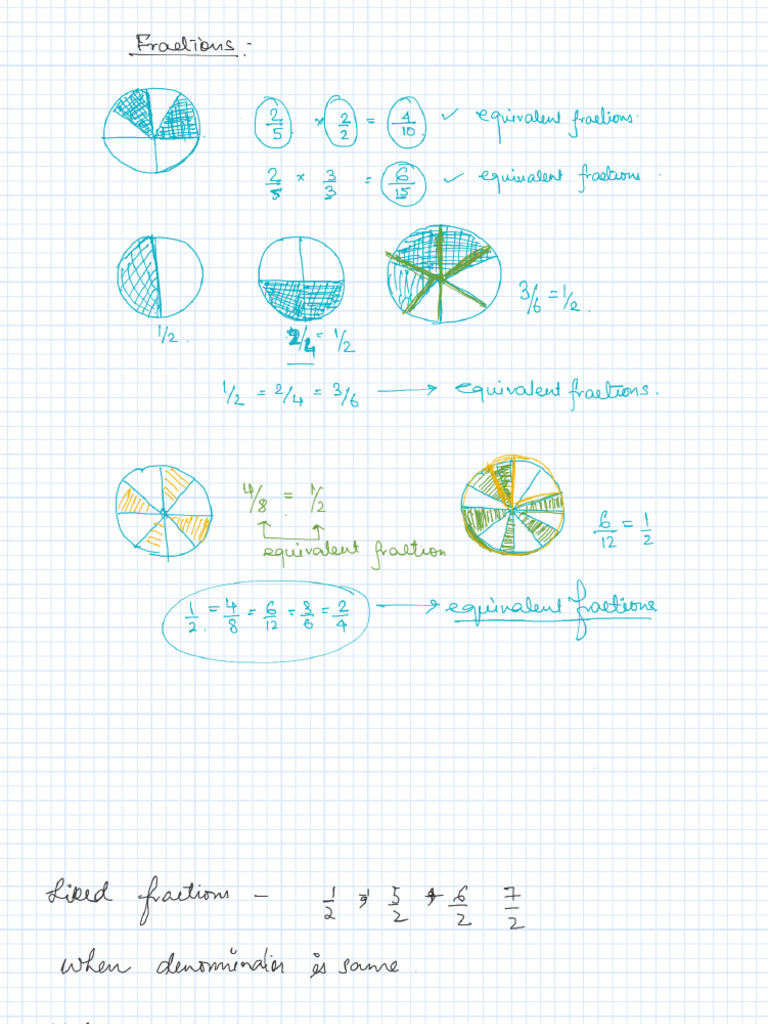 Fractions:-
2/5 × 2/2 = 4/10 ✓ equivalent fractions.
2/5 × 3/3 = 6/15 ✓ equivalent fractions.
3/6 = 1/2.
1/2.
2/4 = 1/2
1/2 = 2/4 = 3/6 → equivalent fractions.
4/8 = 1/2
equivalent fraction
6/12 = 1/2
1/2 = 4/8 = 6/12 = 3/6 = 2/4 → equivalent fractions
fractions - 1/2, 5/2, 6/2 7/2
when denominator is same.